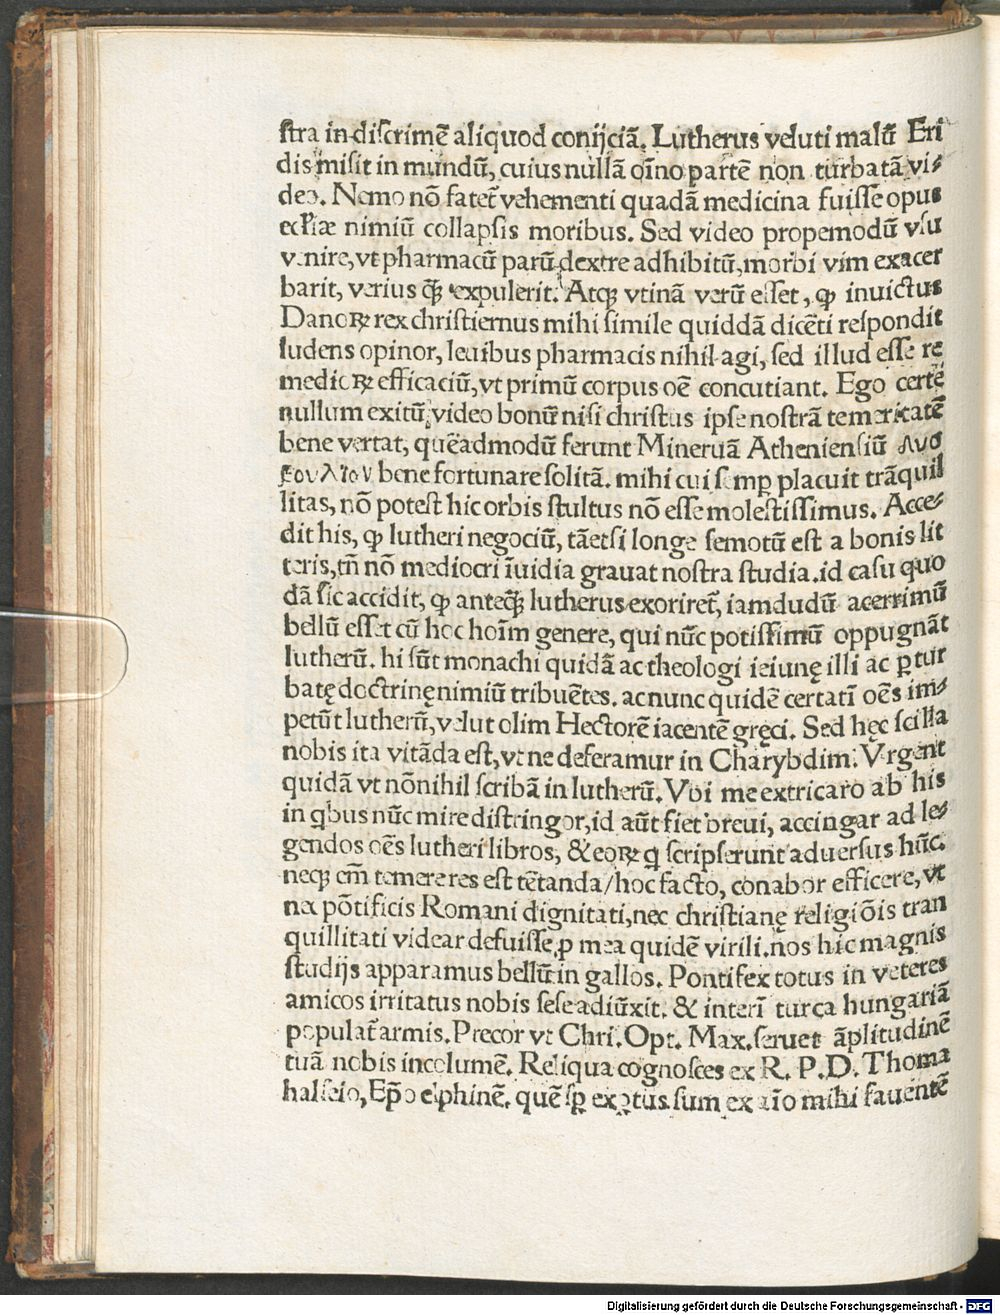 ſtra in diſcrimē aliquod conijciā. Lutherus veluti malū Eri
dis miſit in mundū, cuius nullā oīno partē non turbatā vi⸗
deo. Nemo nō fatet᷑ vehementi quadā medicina fuiſſe opus
eccłiæ nimiū collapſis moribus. Sed video propemodū vſu
venire, vt pharmacū parū dextre adhibitū, morbi vim exacer
barit, verius ꝙ̃ expulerit. Atqꝫ vtinā verū eſſet, ꝙ inuictus
Danoꝝ rex chriſtiernus mihi ſimile quiddā dicēti reſpondit
ludens opinor, leuibus pharmacis nihil agi, ſed illud eſſe re
medioꝝ efficaciū, vt primū corpus oē concutiant. Ego certē
nullum exitū video bonū niſi chriſtus ipſe noſtrā temeritatē
bene vertat, quēadmodū ferunt Mineruā Athenienſiū δυσ
βουλιου bene fortunare ſolitā. mihi cui ſemꝑ placuit trāquil
litas, nō poteſt hic orbis ſtultus nō eſſe moleſtiſſimus. Acce⸗
dit his, ꝙ lutheri negociū, tāetſi longe ſemotū eſt a bonis lit
teris, tñ nō mediocri īuidia grauat noſtra ſtudia. id caſu quo
dā ſic accidit, ꝙ anteꝙ̃ lutherus exoriret᷑, iamdudū acerrimū
bellū eſſet cū hoc hoīm genere, qui nūc potiſſimū oppugnāt
lutherū. hi ſūt monachi quidā ac theologi ieiunę illi ac ꝑtur
batę doctrinę nimiū tribuētes. ac nunc quidē certatī oēs im⸗
petūt lutherū, velut olim Hectorē iacentē gręci. Sed hęc ſcilla
nobis ita vitāda eſt, vt ne deferamur in Charybdim. Vrgent
quidā vt nōnihil ſcribā in lutherū. Vbi me extricaro ab his
in qͥbus nūc mire diſtringor, id aūt fiet breui, accingar ad le⸗
gendos oēs lutheri libros, & eoꝝ qͥ ſcripſerunt aduerſus hūc.
neqꝫ em̄ temere res eſt tētanda / hoc facto, conabor efficere, vt
nec pōtificis Romani dignitati, nec chriſtianę religiōis tran
quillitati videar defuiſſe, ꝓ mea quidē virili. nos hic magnis
ſtudijs apparamus bellū in gallos. Pontifex totus in veteres
amicos irritatus nobis ſeſe adiūxit. & interī turca hungariā
populat᷑ armis. Precor vt Chri. Opt. Max. ſeruet āplitudinē
tuā nobis incolumē. Reliqua cognoſces ex R. P. D. Thoma
halſeio, Ep̄o elphinē. quē ſꝑ exꝑtus ſum ex aīo mihi fauentē
Digitalisierung gefördert durch die Deutsche Forschungsgemeinschaft - DFG